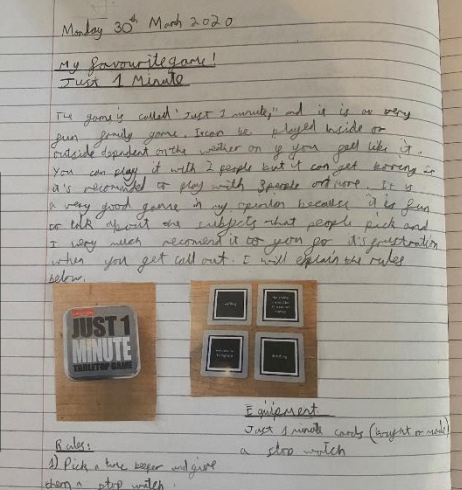 Monday 30th March 2020
My favourite game!
Just 1 Minute
The game is called "Just 1 minute," and it is a very
fun family game. It can be played inside or
outside dependent on the wether or if you feel like it.
You can play it with 2 people but it can get boring so
it's recomended to play with 3 people or more. It is
a very good game in my opinion because it is fun
to talk about the subjects that people pick and
I very much recomend it to you
when you get call out. I will explain the rules
below.
JUST 1
MINUTE
TABLETOP GAME
Equipment
Just 1 minute cards (bought or made)
a stop watch
Rules:
1) Pick a time keeper and give
them a stop watch.